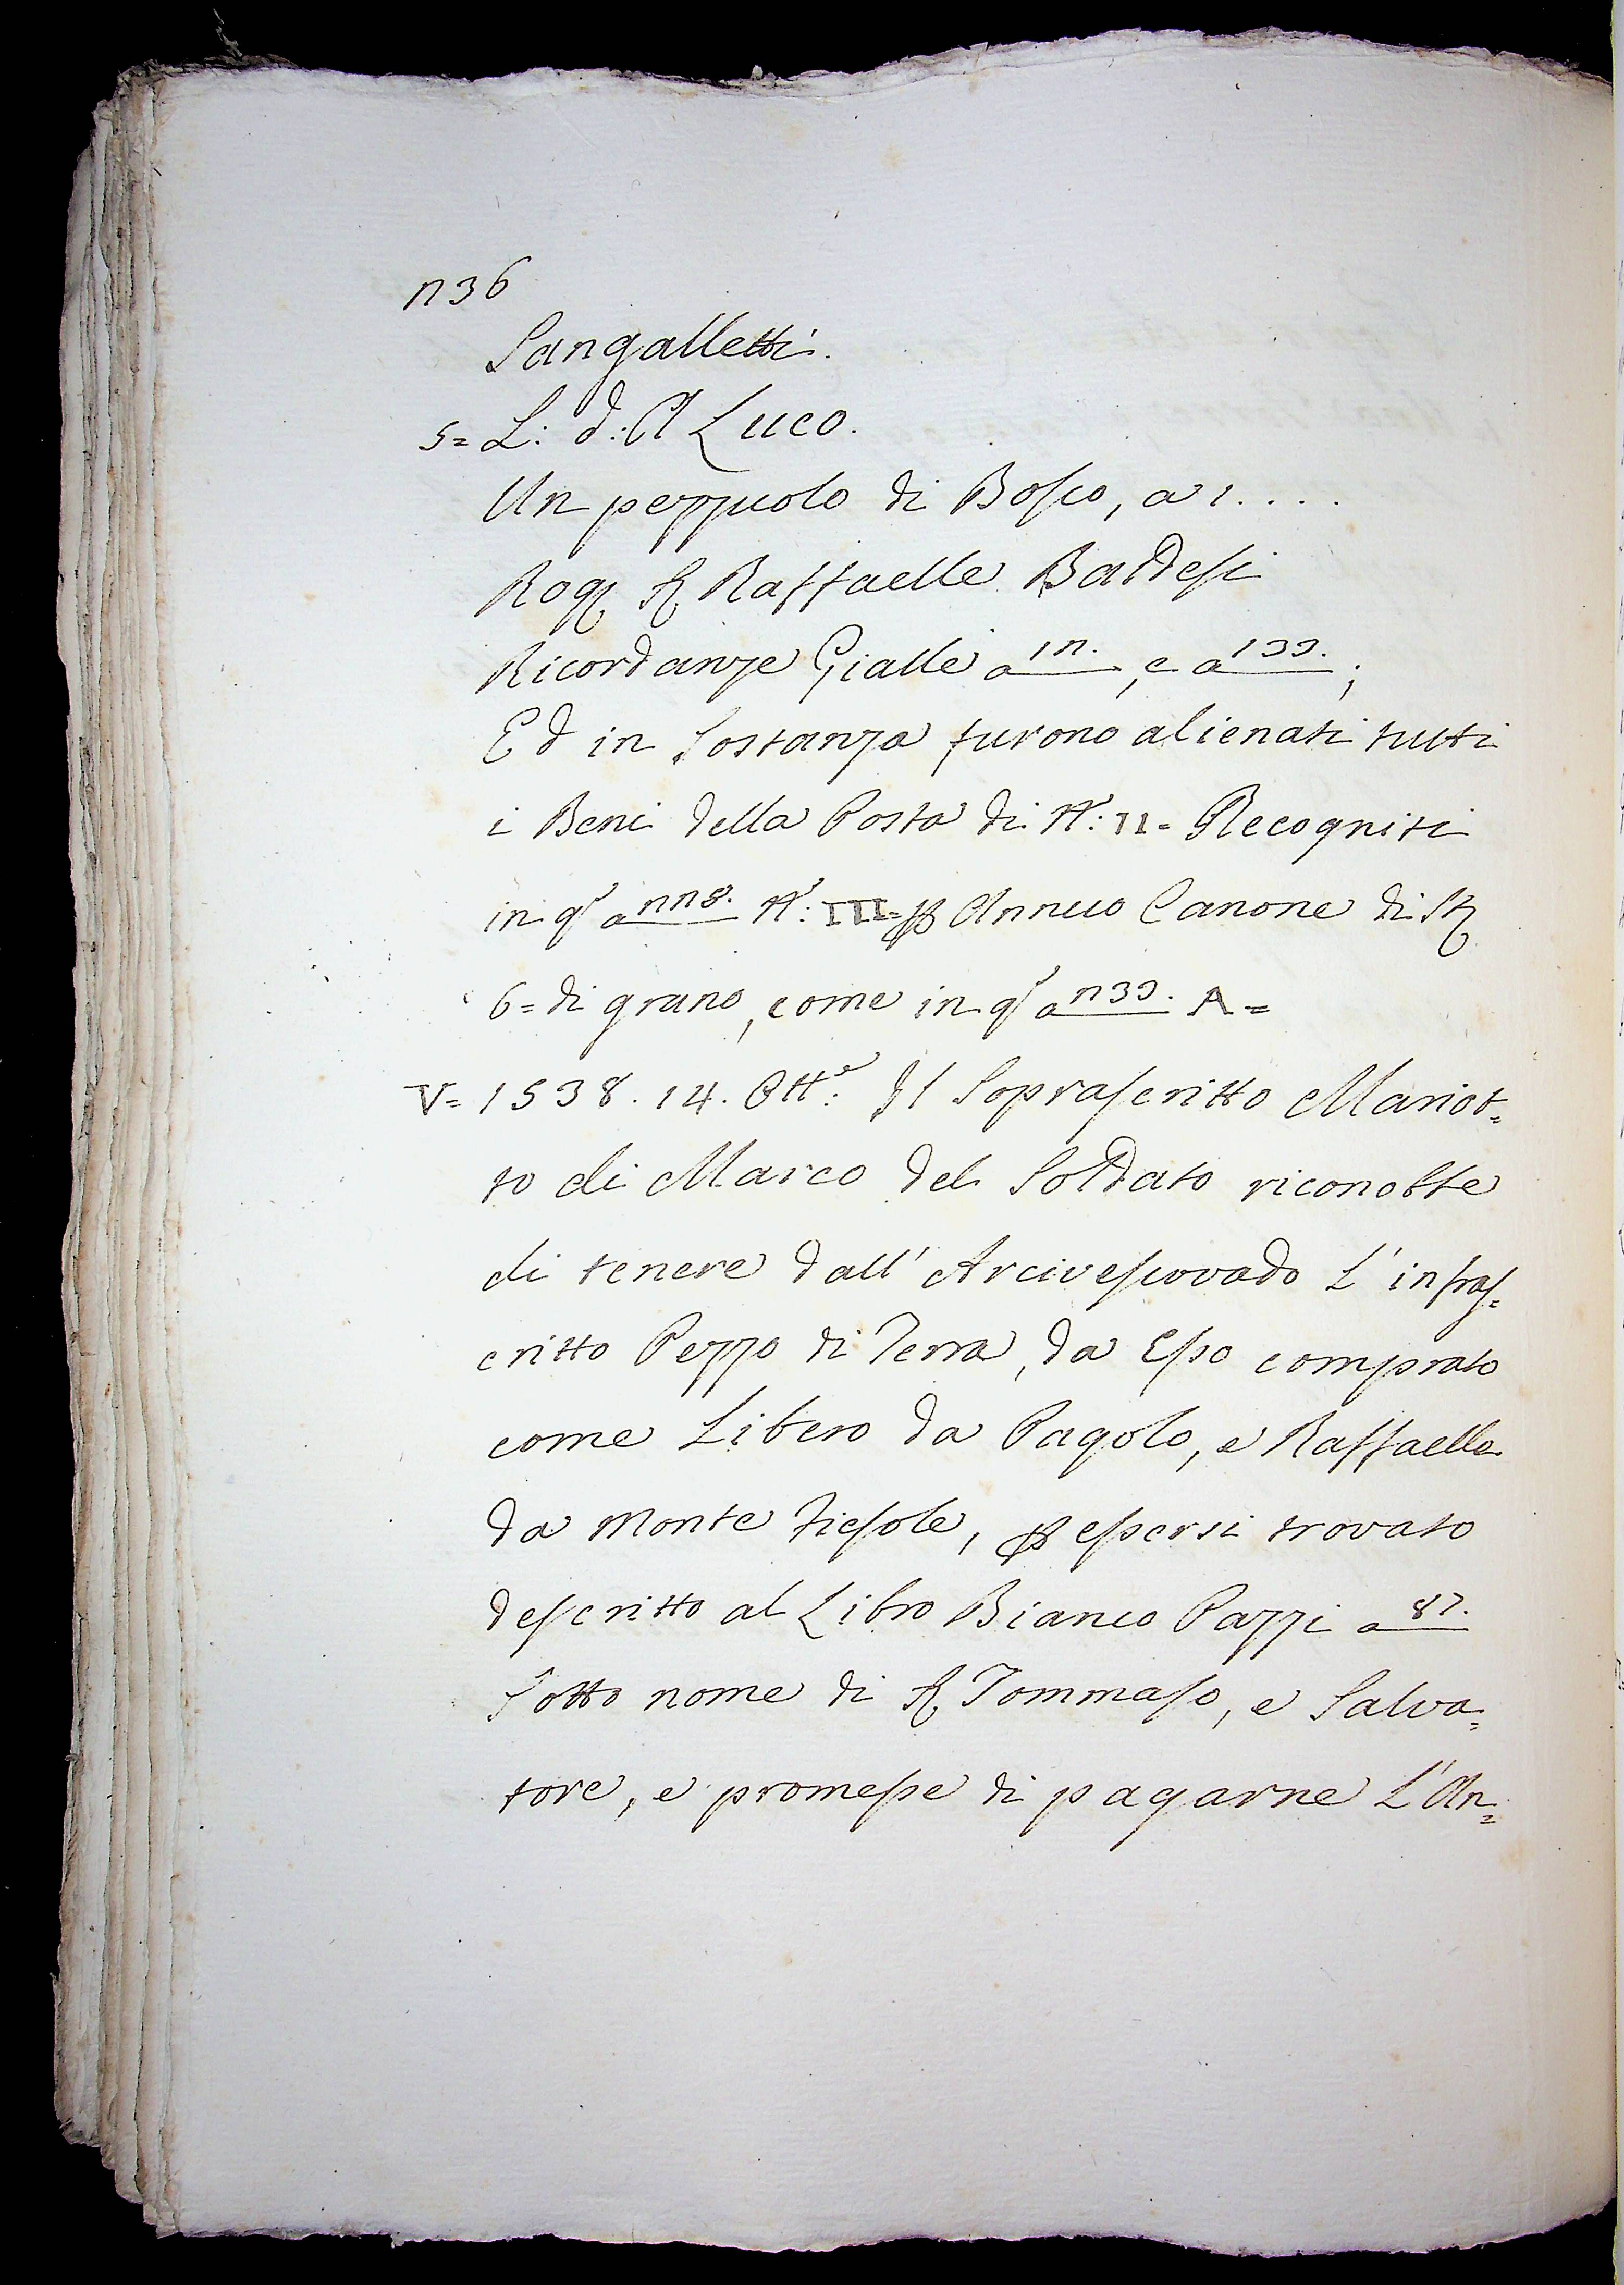 236
Sangalletti.
5= L: d: A Luco.
Un pezzuolo di Bosco, a 1....
Rog. S. Raffaelle Baldesi
Ricordanze Gialle a 12., e a 133.;
Ed in Sostanza furono alienati tutti
i Beni della Posta di N: II= Recogniti
in q. a 228. N: III= p Annuo Canone di St.
6= di grano, come in q. a 233. A=
V= 1538. 14. Ott.e: Il Soprascritto Mariot=
to di Marco del Soldato riconobbe
di tenere dall' Arcivescovado L' infras=
critto Pezzo di Terra, da Esso comprato
come Libero da Pagolo, e Raffaello
da Monte Fiesole, p essersi trovato
descritto al Libro Bianco Pazzi a 87.
Sotto nome di S. Tommaso, e Salva=
tore, e promesse di pagarne L'An=